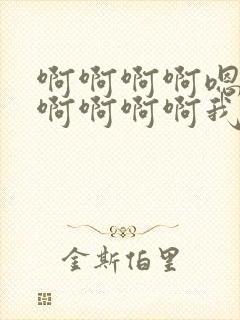 啊啊啊啊嗯
啊啊啊啊我
金斯伯里